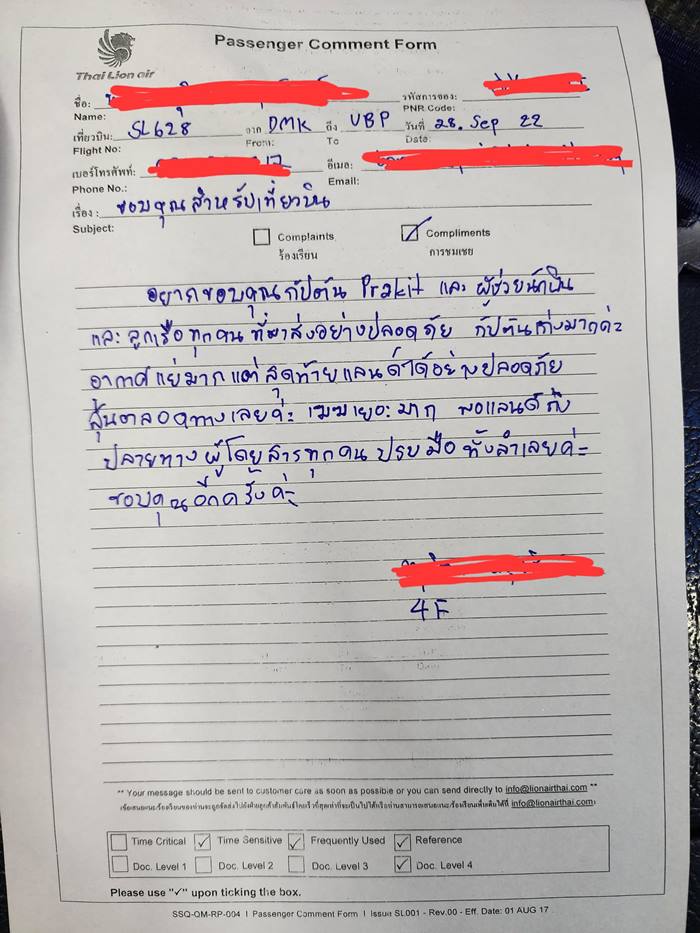 Thai Lion air
Passenger Comment Form
ชื่อ:
Name:
รหัสการจอง:
PNR Code:
เที่ยวบิน: SL628 จาก DMK ถึง UBP วันที่ 28. Sep 22
Flight No: From: To Date:
เบอร์โทรศัพท์: อีเมล:
Phone No.: Email:
เรื่อง: ขอบคุณสำหรับเที่ยวบิน
Subject:
Complaints ✓ Compliments
ร้องเรียน การชมเชย
อยากขอบคุณกัปตัน Prakit และ ผู้ช่วยนักบิน
และ ลูกเรือทุกคน ที่มาส่งอย่างปลอดภัย กัปตันเก่งมากค่ะ
อากาศแย่มาก แต่สุดท้ายแลนด์ได้อย่างปลอดภัย
ลุ้นตลอดทางเลยค่ะ เมฆเยอะมาก พอแลนด์ถึง
ปลายทาง ผู้โดยสารทุกคน ปรบมือ ทั้งลำเลยค่ะ
ขอบคุณอีกครั้งค่ะ
4F
** Your message should be sent to customer care as soon as possible or you can send directly to info@lionairthai.com **
info@lionairthai.com
Time Critical ✓ Time Sensitive ✓ Frequently Used ✓ Reference
Doc. Level 1 Doc. Level 2 Doc. Level 3 ✓ Doc. Level 4
Please use "✓" upon ticking the box.
SSQ-QM-RP-004 I Passenger Comment Form I Issue SL001 - Rev.00 - Eff. Date: 01 AUG 17